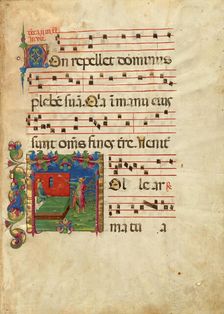 on repellet dominus
plebē suā. Q̄a ī manu eius
sunt om̄s fines tr̄e. Uenit
ol le ar
ma tu a